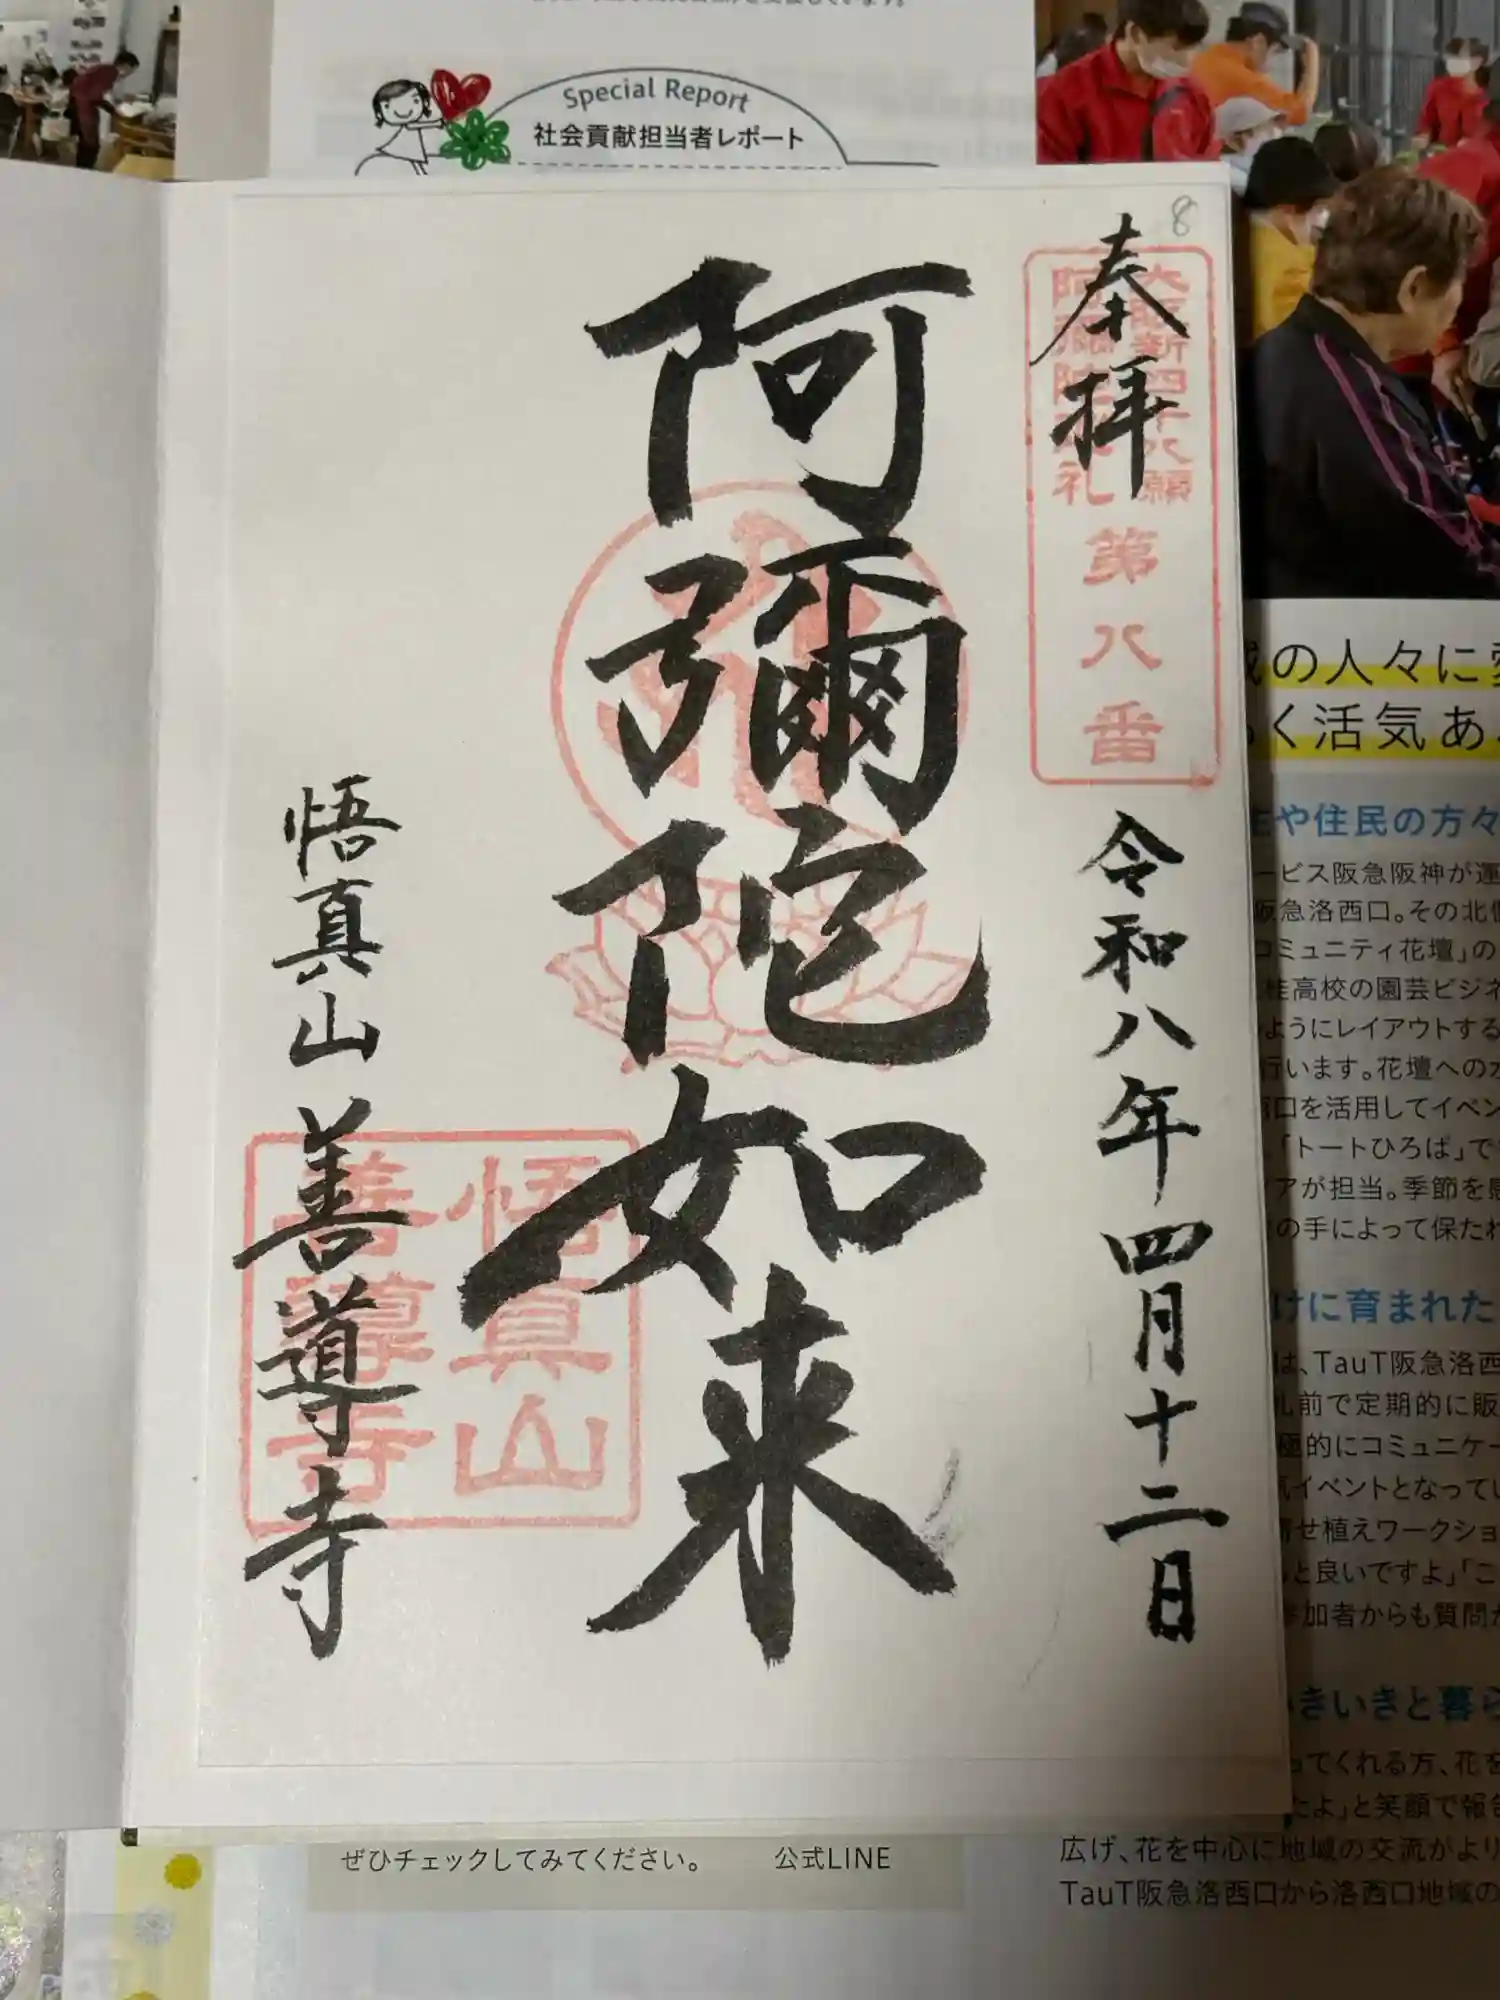 Special Report
社会貢献担当者レポート
8
奉拝
大阪新四十八願
阿彌陀巡礼
第八番
令和八年四月十二日
阿彌陀如来
悟真山 善導寺
悟真山
善導寺
の人々に
く活気あ
や住民の方々
ービス阪急阪神が運
阪急洛西口。その北側
コミュニティ花壇」の
桂高校の園芸ビジネ
ようにレイアウトする
行います。花壇への水
口を活用してイベン
「トートひろば」で
アが担当。季節を感
の手によって保たれ
けに育まれた
は、TauT阪急洛西
札前で定期的に販
極的にコミュニケー
気イベントとなってい
寄せ植えワークショ
と良いですよ」「こ
参加者からも質問が
いきいきと暮ら
ってくれる方、花を
たよ」と笑顔で報告
広げ、花を中心に地域の交流がより
TauT阪急洛西口から洛西口地域の
ぜひチェックしてみてください。
公式LINE